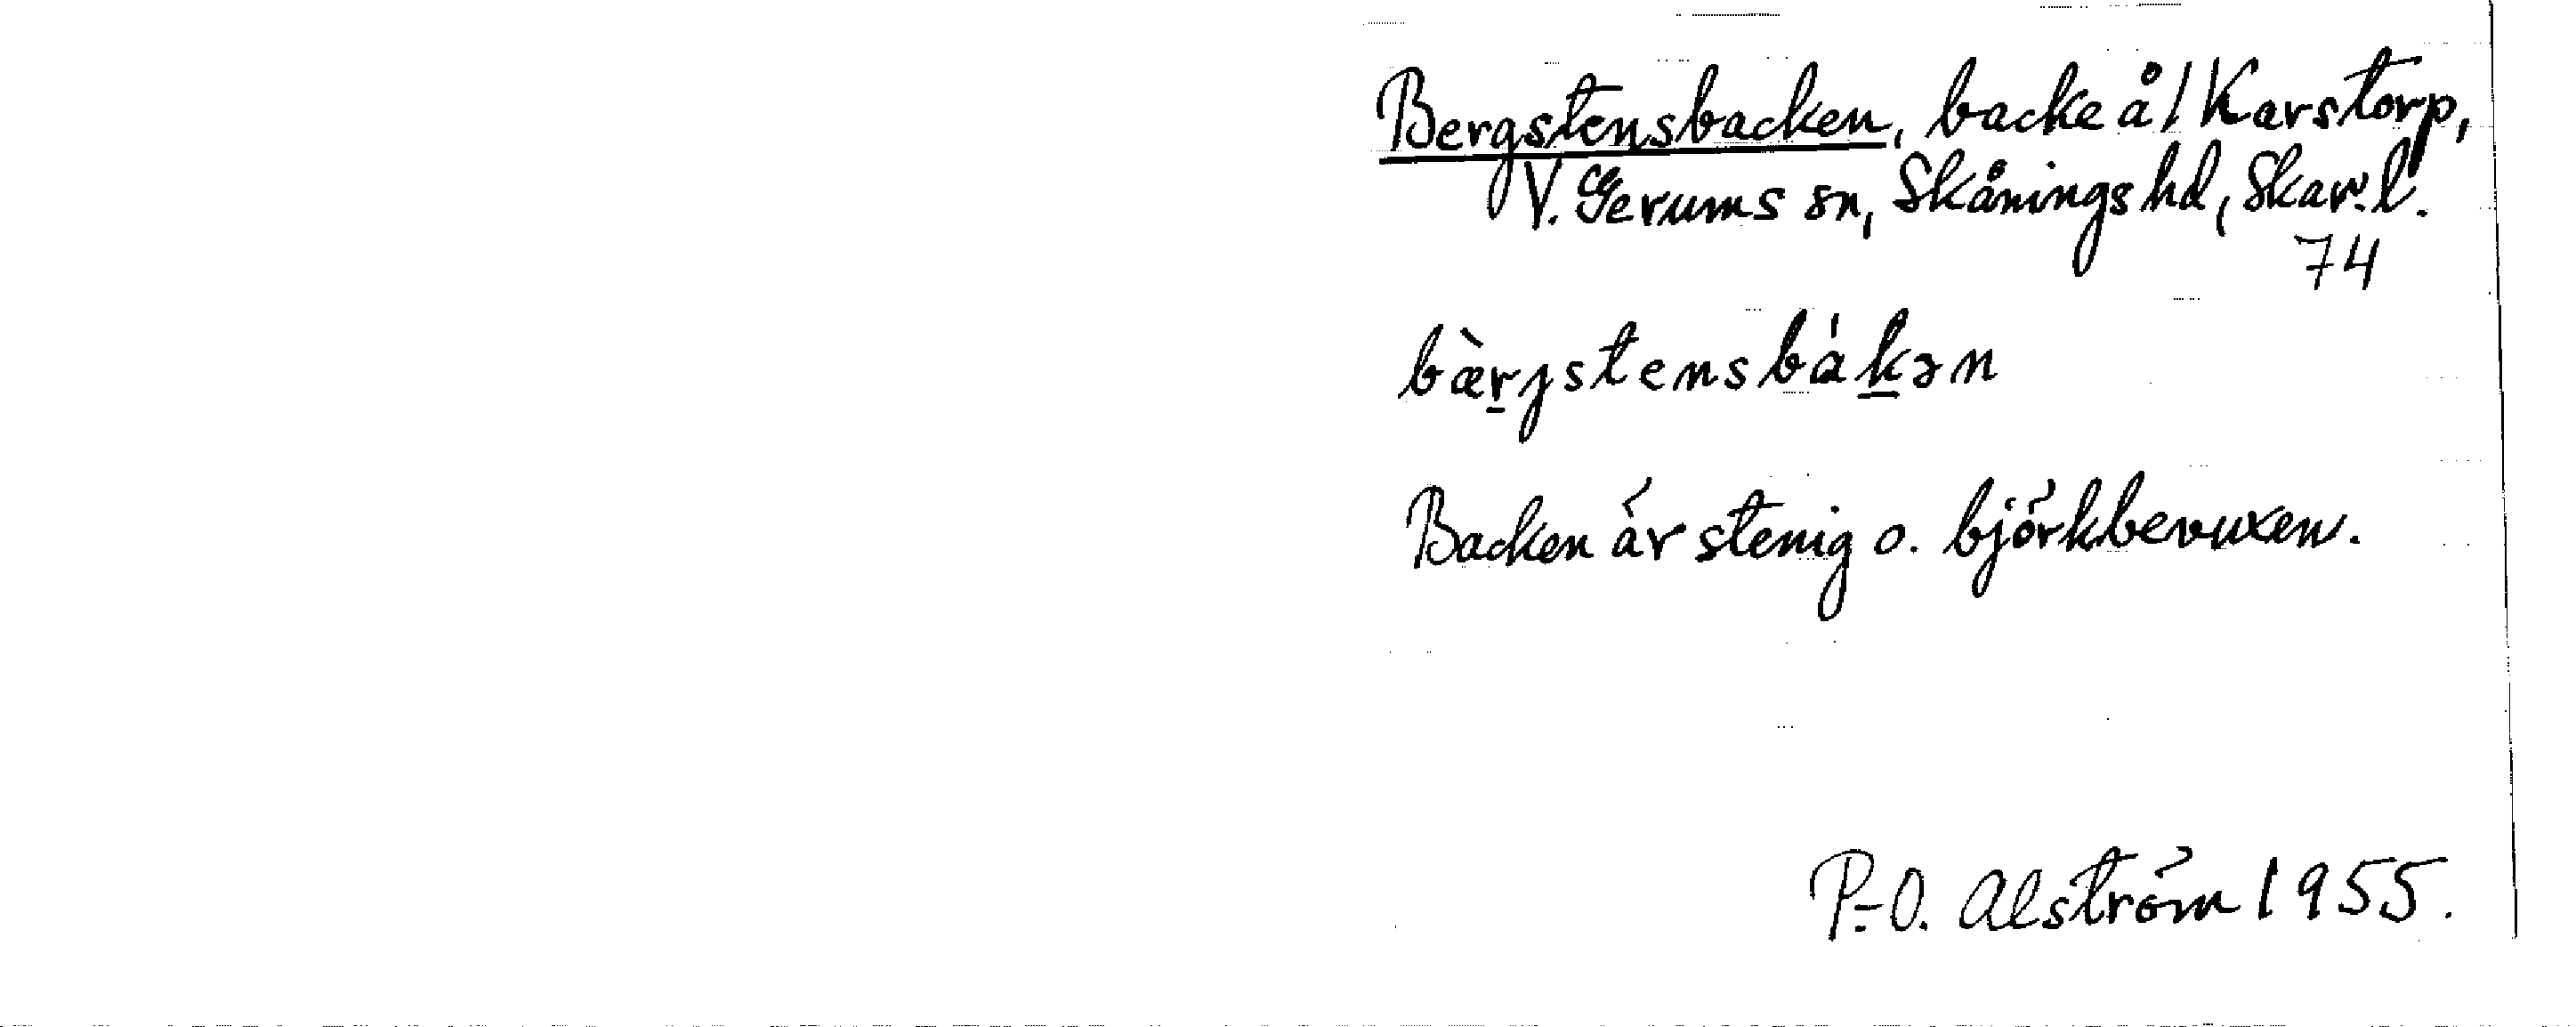 Bergstensbacken, backe å 1 Karstorp,
V. Gerums sn, Skånings hd, Skar. l.
74
bæ̀r̲jstensbák̲ən
Backen är stenig o. björkbevuxen.
P.-O. Alström 1955.